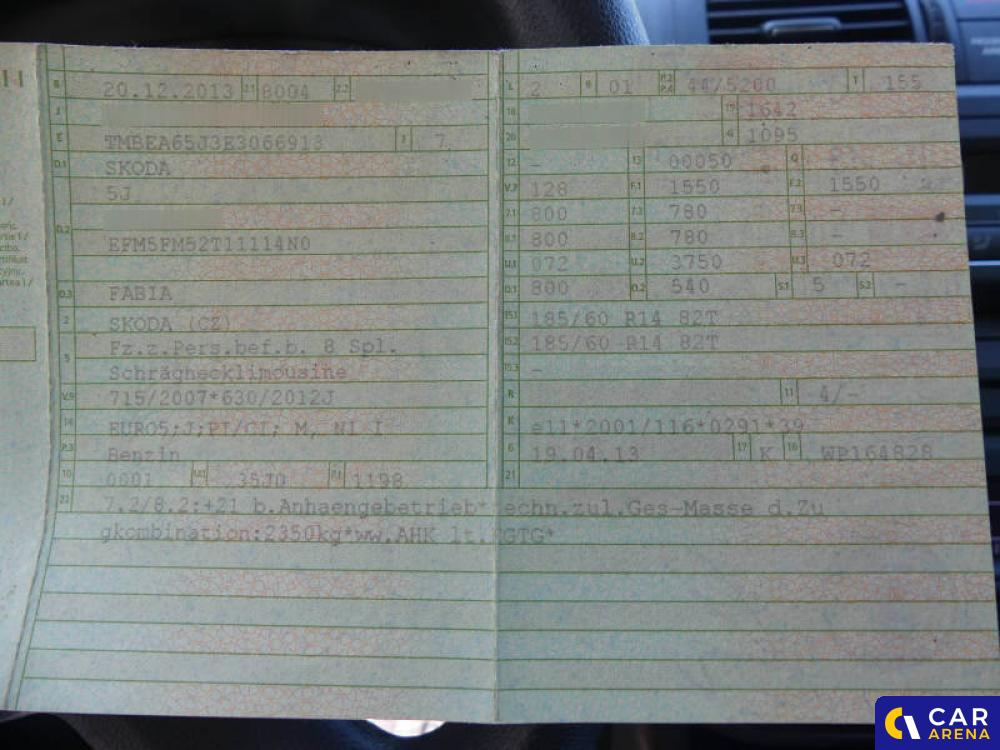 B 20.12.2013 2.1 8004 2.2
J
E TMBEA65J3E3066913 3 7
D.1 SKODA
5J
D.2
EFM5FM52T11114N0
D.3 FABIA
2 SKODA (CZ)
5 Fz.z.Pers.bef.b. 8 Spl.
Schräghecklimousine
V.9 715/2007*630/2012J
14 EURO5;J;PI/CI; M, NI I
P.3 Benzin
10 0001 14.1 35J0 P.1 1198
L 2 9 01 P.2 P.4 44/5200 T 155
18 19 1642
20 G 1095
12 - 13 00050 Q -
V.7 128 F.1 1550 F.2 1550
7.1 800 7.2 780 7.3 -
8.1 800 8.2 780 8.3 -
U.1 072 U.2 3750 U.3 072
O.1 800 O.2 540 S.1 5 S.2 -
15.1 185/60 R14 82T
15.2 185/60 R14 82T
15.3 -
R 11 4/-
K e11*2001/116*0291*39
6 19.04.13 17 K 16 WP164828
21
22 7.2/8.2:+21 b.Anhaengebetrieb*techn.zul.Ges-Masse d.Zu
gkombination:2350kg*ww.AHK lt. GTG*
CAR
ARENA